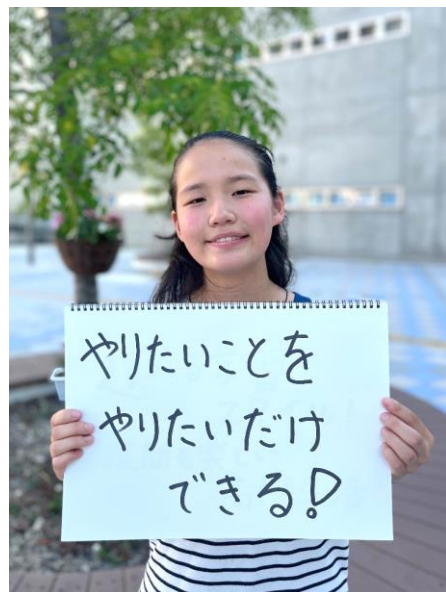 やりたいことを
やりたいだけ
できる!